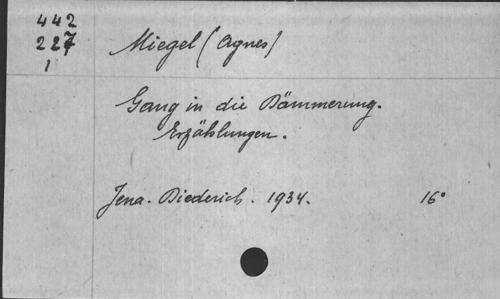 442
227
1
Miegel (Agnes)
Gang in die Dämmerung.
Erzählungen.
Jena. Diederich. 1934. 16°